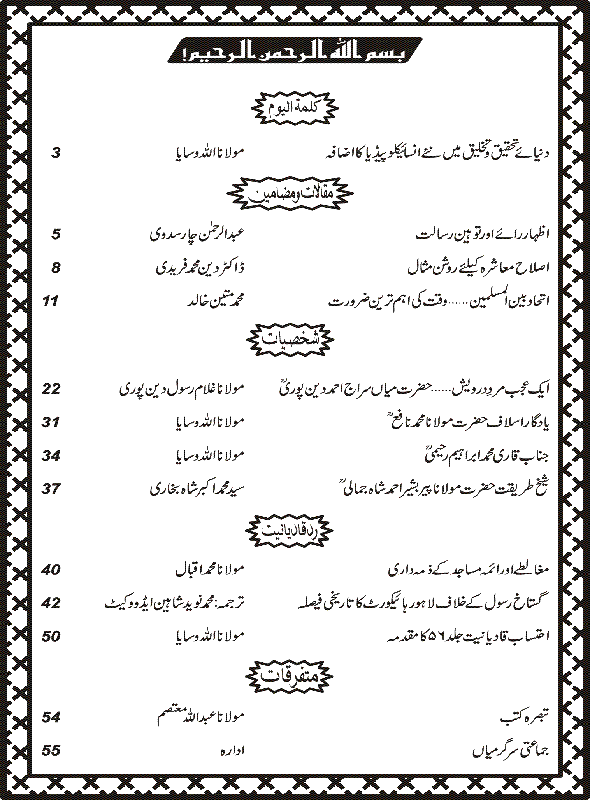 بسم اللہ الرحمن الرحیم!
کلمۃ الیوم
دنیائے تحقیق وتخلیق میں نئے انسائیکلوپیڈیا کا اضافہ مولانا اللہ وسایا 3
مقالات ومضامین
اظہار رائے اور توہین رسالت عبدالرحمٰن چارسدوی 5
اصلاح معاشرہ کیلئے روشن مثال ڈاکٹر دین محمد فریدی 8
اتحاد بین المسلمین......وقت کی اہم ترین ضرورت محمد متین خالد 11
شخصیات
ایک عجب مرد درویش......حضرت میاں سراج احمد دین پوریؒ مولانا غلام رسول دین پوری 22
یادگار اسلاف حضرت مولانا محمد نافعؒ مولانا اللہ وسایا 31
جناب قاری محمد ابراہیم رحیمیؒ مولانا اللہ وسایا 34
شیخ طریقت حضرت مولانا پیر بشیر احمد شاہ جمالیؒ سید محمد اکبر شاہ بخاری 37
رد قادیانیت
مغالطے اور ائمہ مساجد کے ذمہ داری مولانا محمد اقبال 40
گستاخ رسول کے خلاف لاہور ہائیکورٹ کا تاریخی فیصلہ ترجمہ: محمد نوید شاہین ایڈووکیٹ 42
احتساب قادیانیت جلد ۵۶ کا مقدمہ مولانا اللہ وسایا 50
متفرقات
تبصرہ کتب مولانا عبداللہ معتصم 54
جماعتی سرگرمیاں ادارہ 55